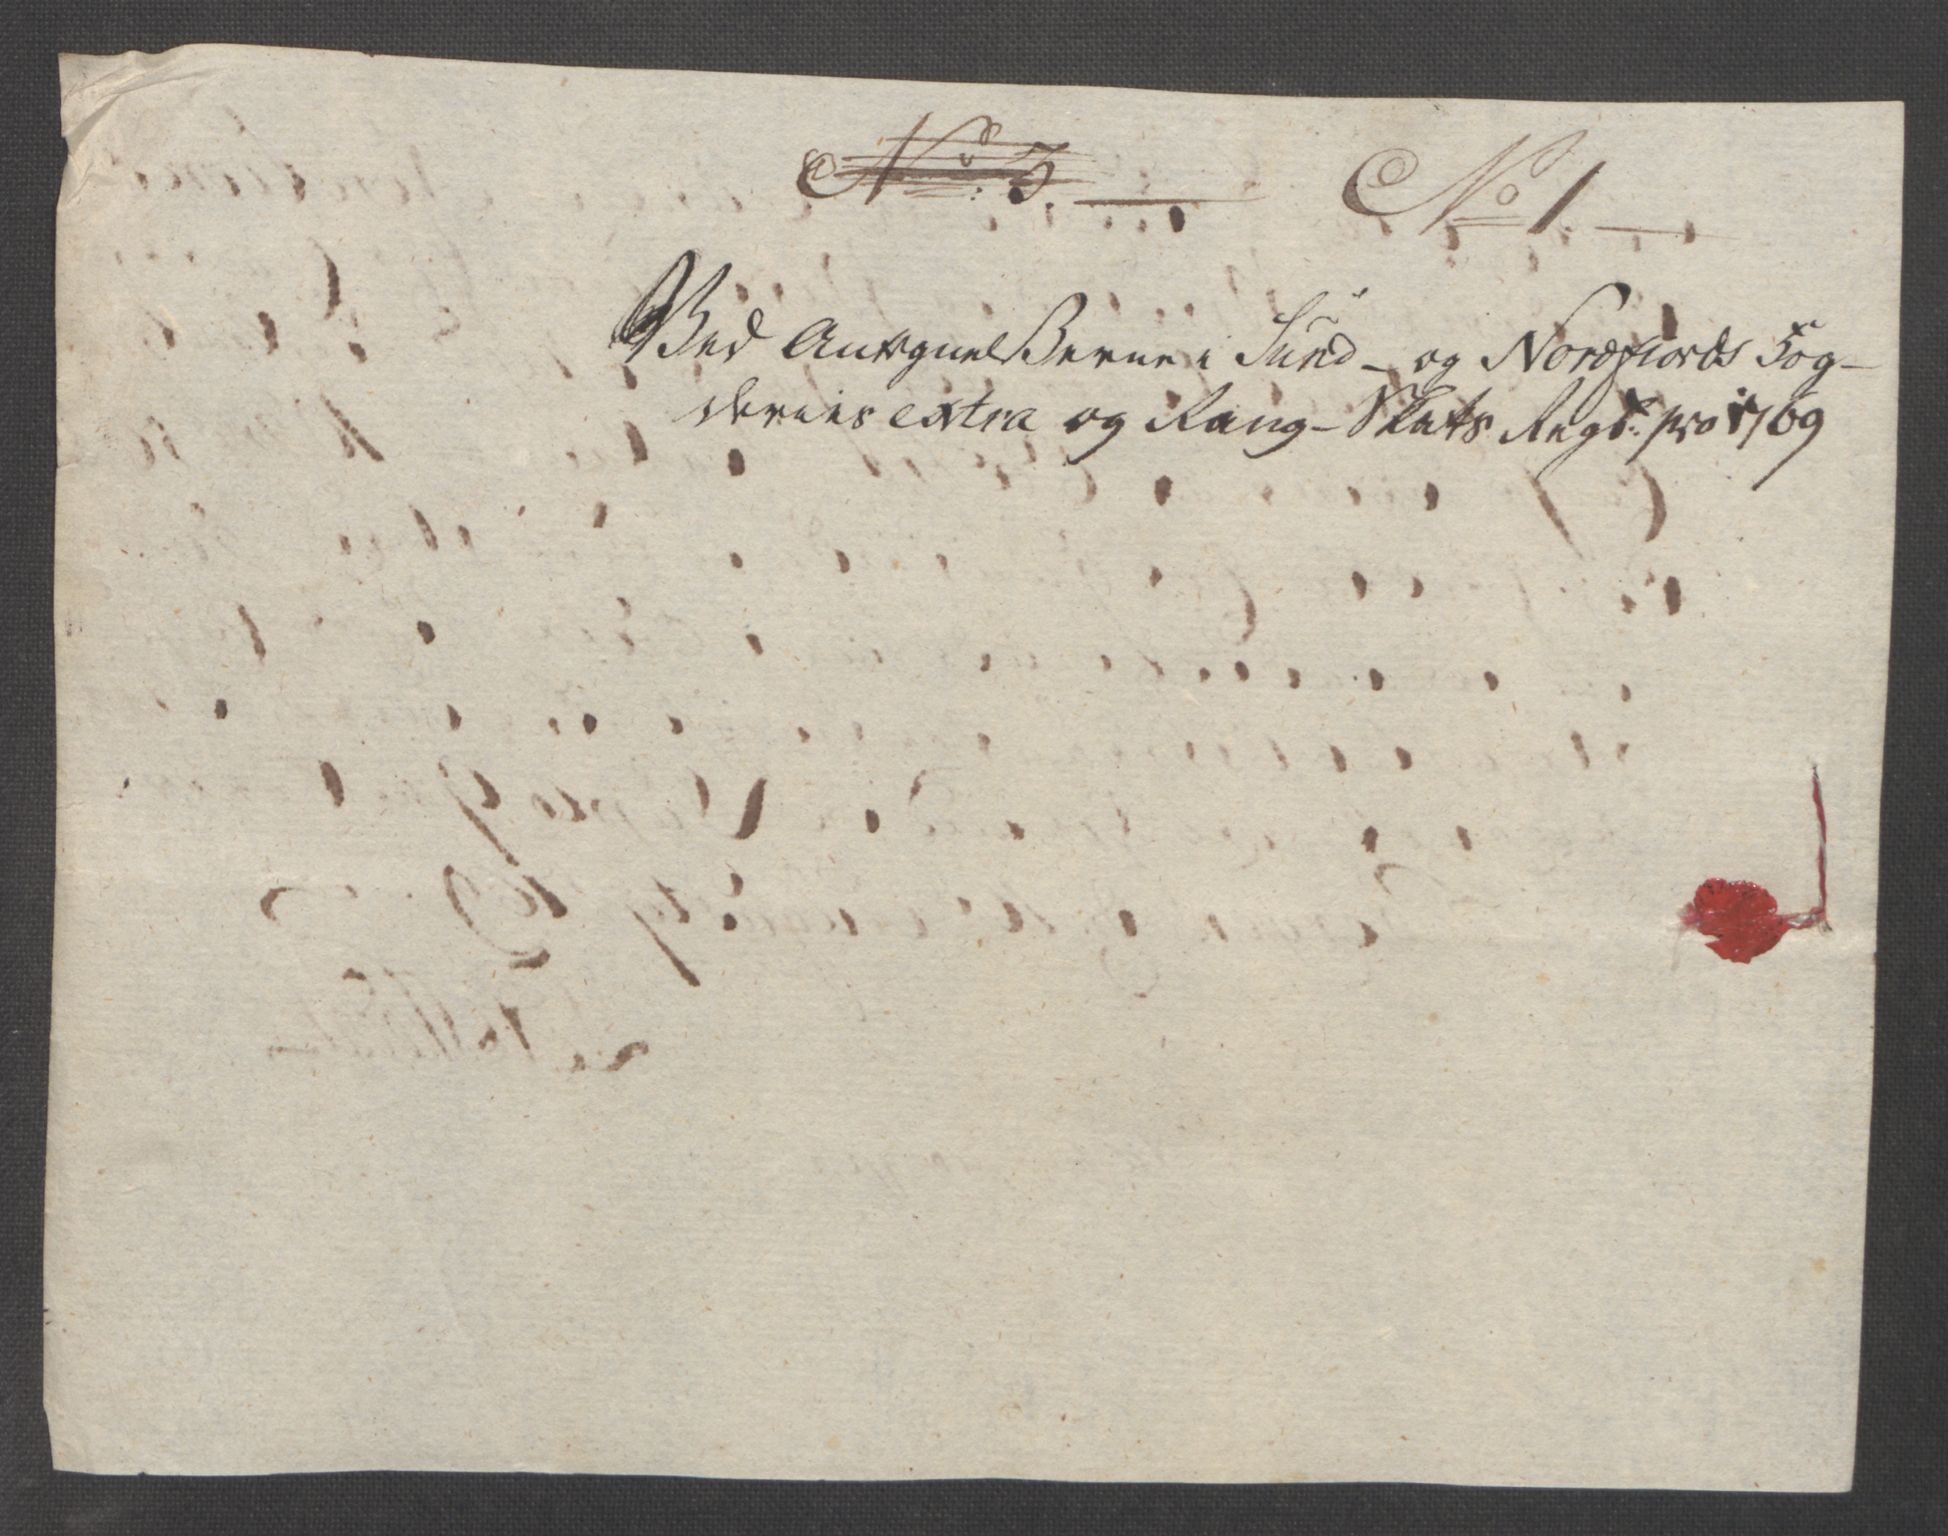 No: 3. No 1.
Ved Antegnelserne i Sund- og Nordfiords Fog-
deries extra og Rang-Skats Regsk: pro 1769